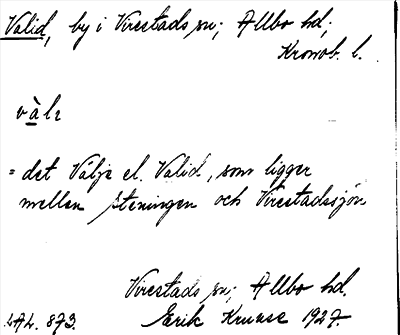 Valid, by i Virestads sn; Allbo hd;
Kronob. l.
vàlɛ
= det Välje el. Valid, som ligger
mellan Steningen och Virestadssjön
Virestads sn; Allbo hd.
LAL. 873. Erik Kruuse 1927.